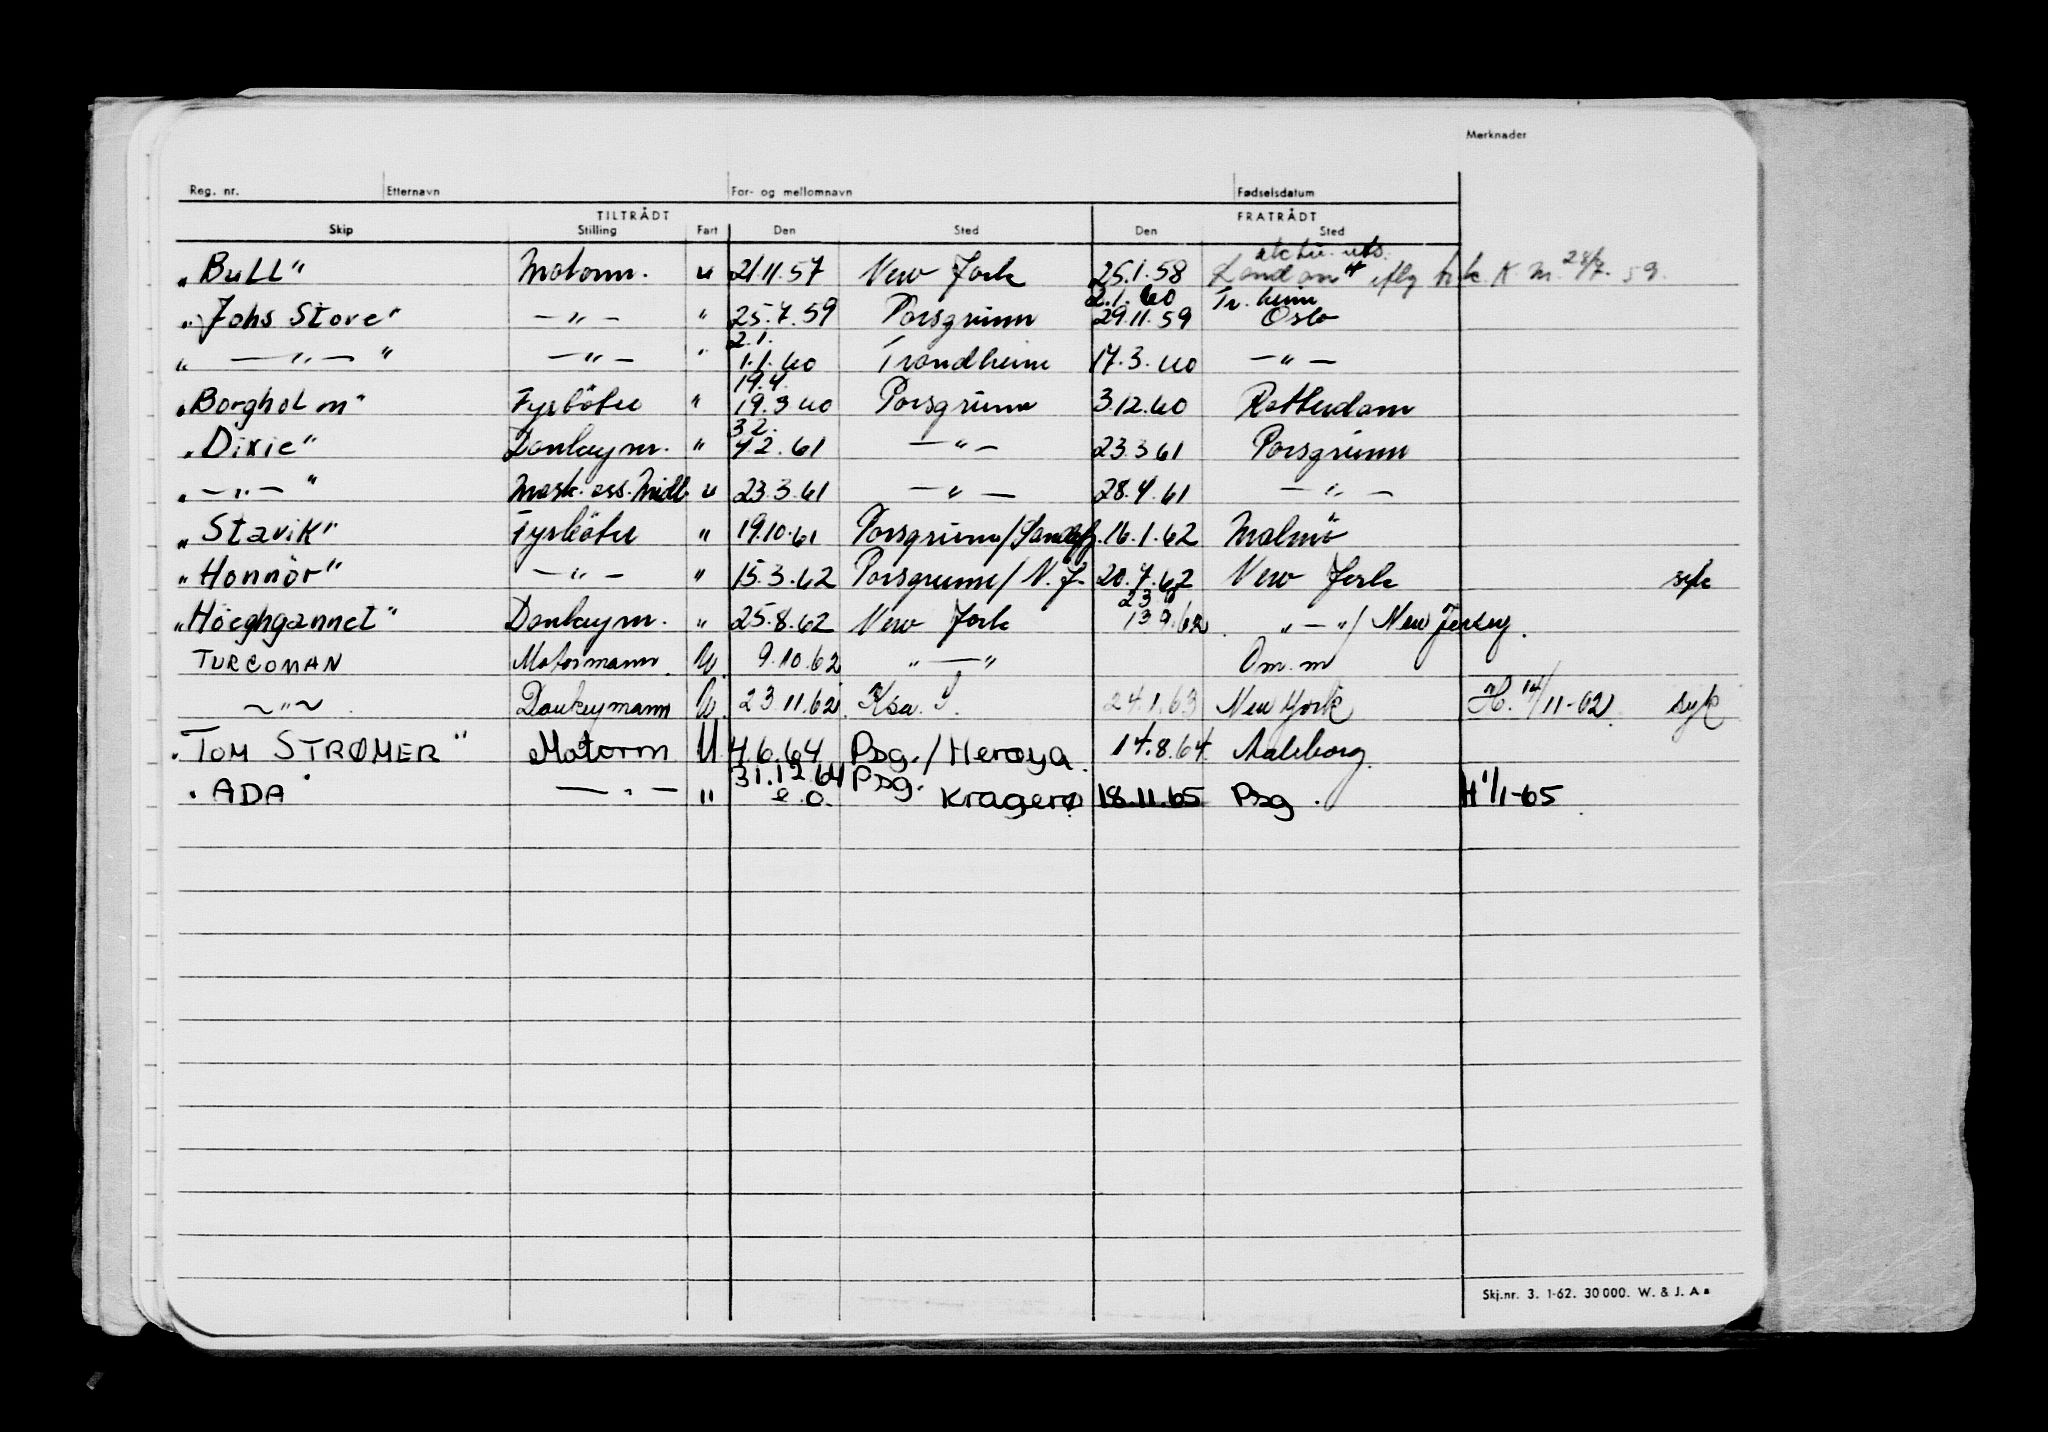 Merknader
Reg. nr. Etternavn For- og mellomnavn Fødselsdatum
TILTRÅDT FRATRÅDT
Skip Stilling Fart Den Sted Den Sted
„Bull" Motorm. u 21.11.57 New York 25.1.58 London K.M. 59.
2.1.60 Tr. heim
„Johs Stove" —„— " 25.7.59 Porsgrunn 29.11.59 Oslo
2.1.
„ —„— " —„— " 1.1.60 Trondheim 17.3.60 —„—
19.4.
„Borgholm" Fyrböter " 19.3 60 Porsgrunn 3.12.60 Rotterdam
3 2.
„Dixie" Donkeym. " 4 2. 61 —„— 23.3 61 Porsgrunn
„—„— " Mask. ass. Midl. u 23.3.61 —„— 28.4.61 —„—
„Stavik" Fyrböter " 19.10.61 Porsgrunn/Sandefj. 16.1.62 Malmö
„Honnör" —„— " 15.3.62 Porsgrunn/N.J. 20.7.62 New York syk
23 10
„Höeghgannet" Donkeym. " 25.8.62 New York 13 9.62 „—"/ New Jersey.
TURCOMAN Motormann U. 9.10.62 „—" Om. m
~"~ Donkeymann U. 23.11.62 24.1.63 New York H. 14/11-62 syk
„TOM STRØMER" Motorm U 4.6.64 Psg./Herøya. 14.8.64 Aalborg.
31.12 64 Psg.
"ADA" —"— " e.o. Kragerø 18.11.65 Psg. H 1/1-65
Skj.nr. 3. 1-62. 30 000. W. & J. A s